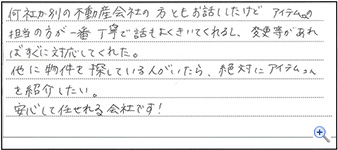 何社か別の不動産会社の方ともお話ししたけど アイテムの
担当の方が一番丁寧で話もよくきいてくれるし、変更等があれ
ばすぐに対応してくれた。
他に物件を探している人がいたら、絶対にアイテムさん
を紹介したい。
安心して任せれる会社です！